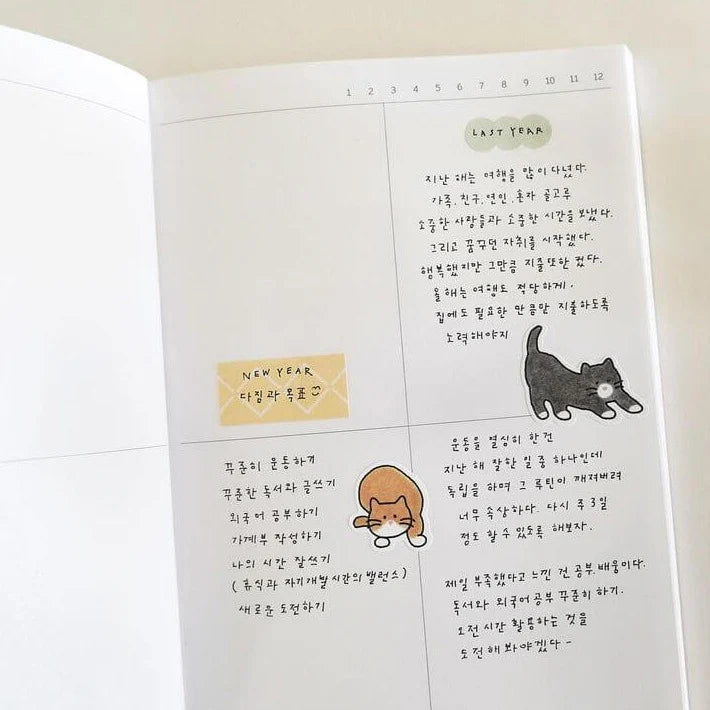 1 2 3 4 5 6 7 8 9 10 11 12
LAST YEAR
지난 해는 여행을 많이 다녔다.
가족. 친구. 연인. 혼자 골고루
소중한 사람들과 소중한 시간을 보냈다.
그리고 꿈꾸던 자취를 시작했다.
행복했지만 그만큼 지출또한 컸다.
올해는 여행도 적당하게.
집에도 필요한 만큼만 지출하도록
노력해야지
NEW YEAR
다짐과 목표
꾸준히 운동하기
꾸준한 독서와 글쓰기
외국어 공부하기
가계부 작성하기
나의 시간 잘쓰기
(휴식과 자기개발시간의 밸런스)
새로운 도전하기
운동을 열심히 한건
지난 해 잘한 일 중 하나인데
독립을 하며 그 루틴이 깨져버려
너무 속상하다. 다시 주3일
정도 할 수 있도록 해보자.
제일 부족했다고 느낀 건 공부. 배움이다.
독서와 외국어공부 꾸준히 하기.
오전시간 활용하는 것을
도전해봐야겠다 -